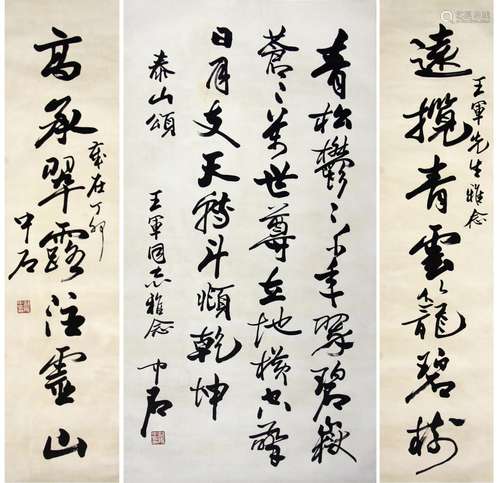 遠攬青雲籠碧樹
王軍先生雅念
青松鬱〻千年翠碧嶽
蒼〻萬世尊立地橫空擎
日月支天轉斗順乾坤
泰山頌 王軍同志雅念 中石
高承翠露注靈山
歲在丁卯
中石